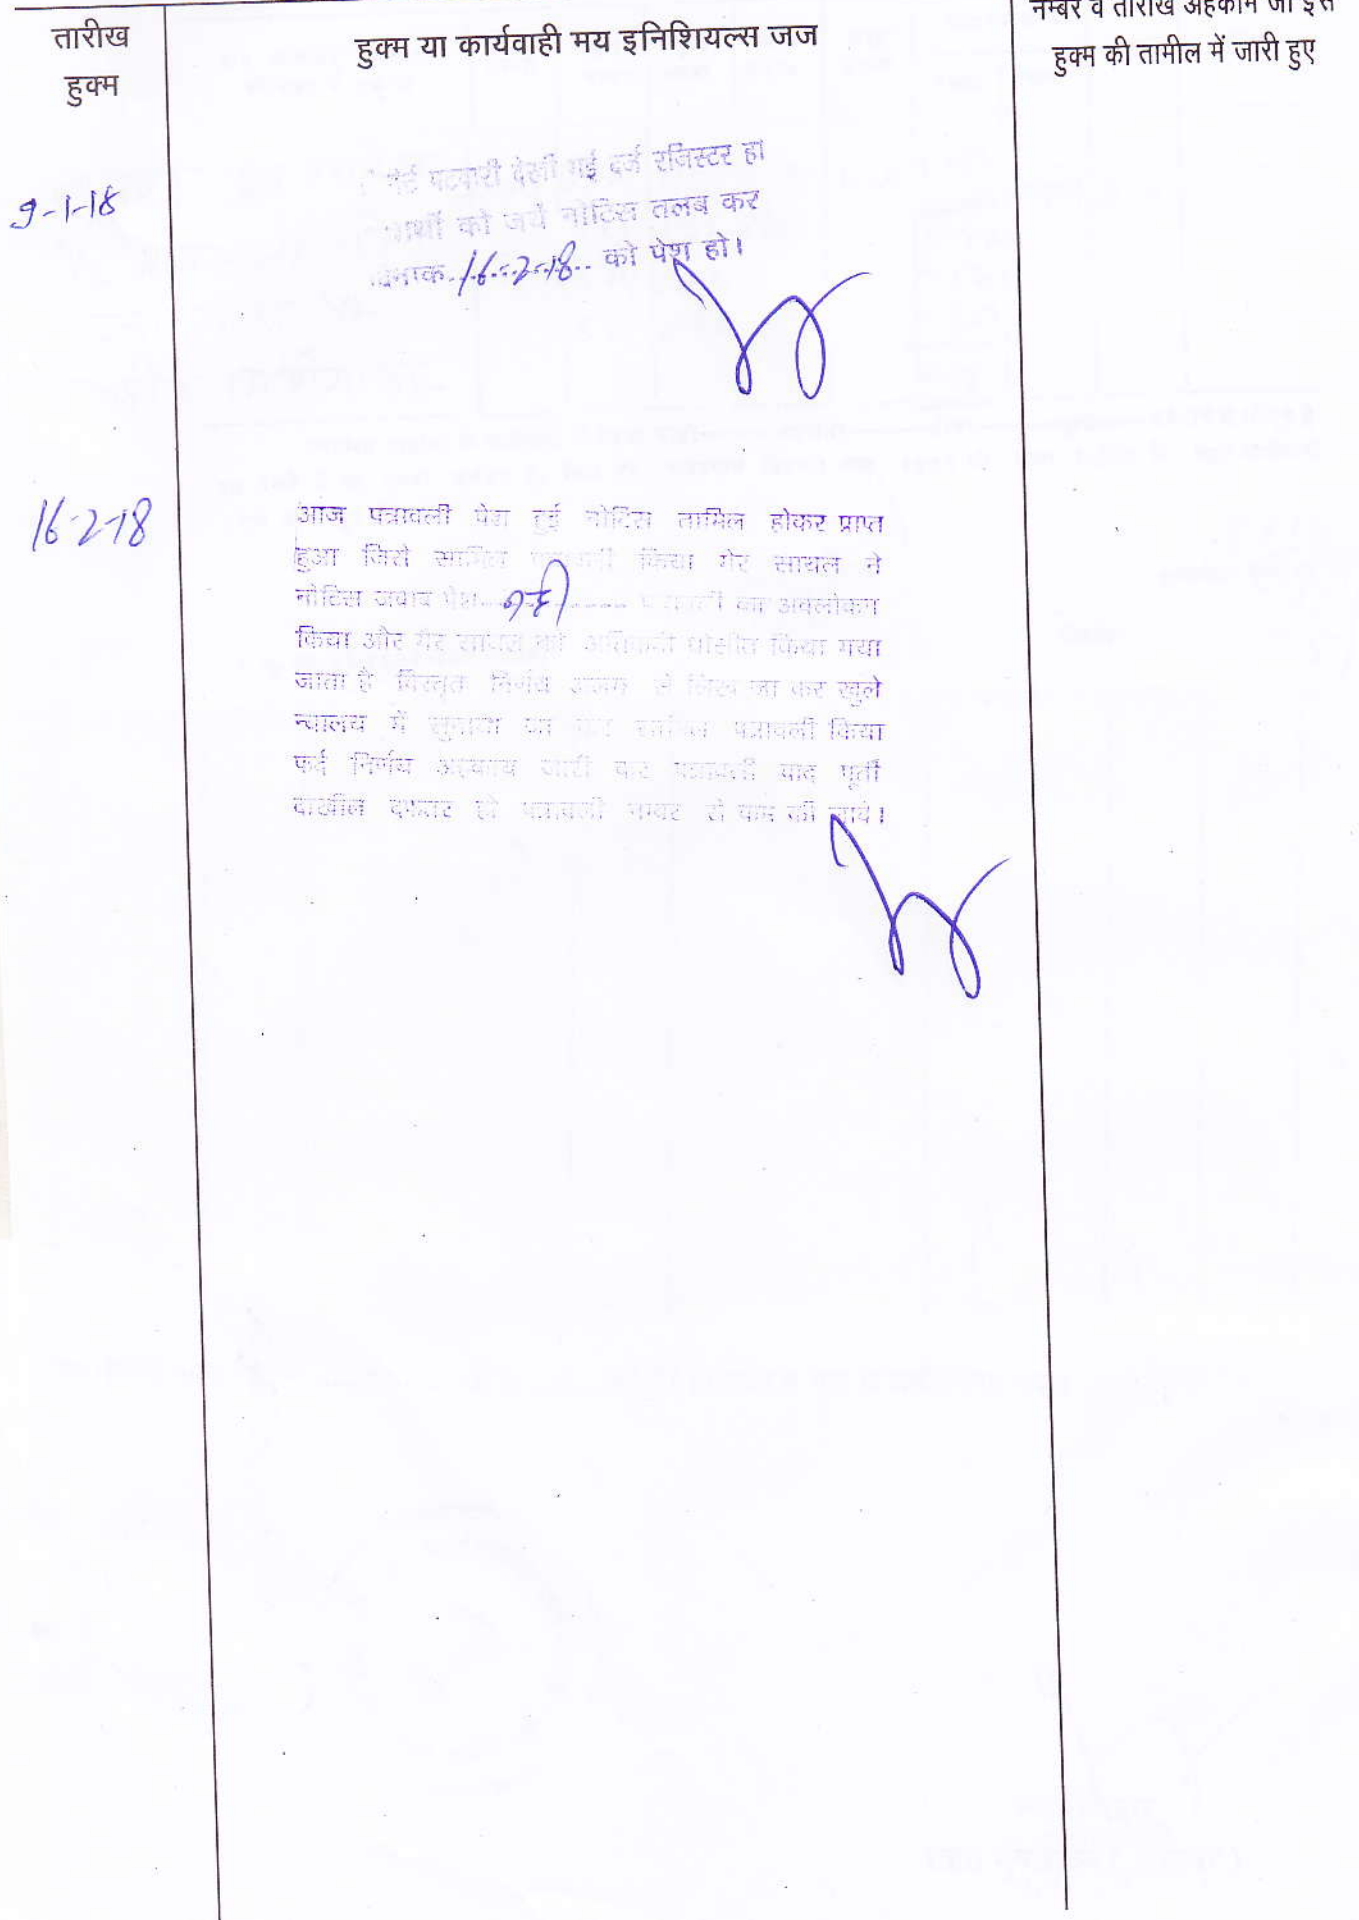 तारीख
हुक्म
हुक्म या कार्यवाही मय इनिशियल्स जज
नम्बर व तारीख अहकाम जो इस
हुक्म की तामील में जारी हुए
9-1-18
पटवारी देखी गई दर्ज रजिस्टर हो
को जर्ये नोटिस तलब कर
16-2-18 को पेश हो।
16-2-18
आज पत्रावली पेश हुई नोटिस तामिल होकर प्राप्त
हुआ जिसे सामिल किया गेर सायल ने
नोटिस जवाब पेश नही का अवलोकन
किया और गेर सायल को किया गया
जाता है विस्तृत निर्णय अलग से लिखा जा कर खुले
न्यालय में सुनाया जा पत्रावली किया
फर्द निर्णय जारी कर पत्रावली बाद पूर्ती
दाखील दफतर हो पत्रावली नम्बर से कम की जावे।